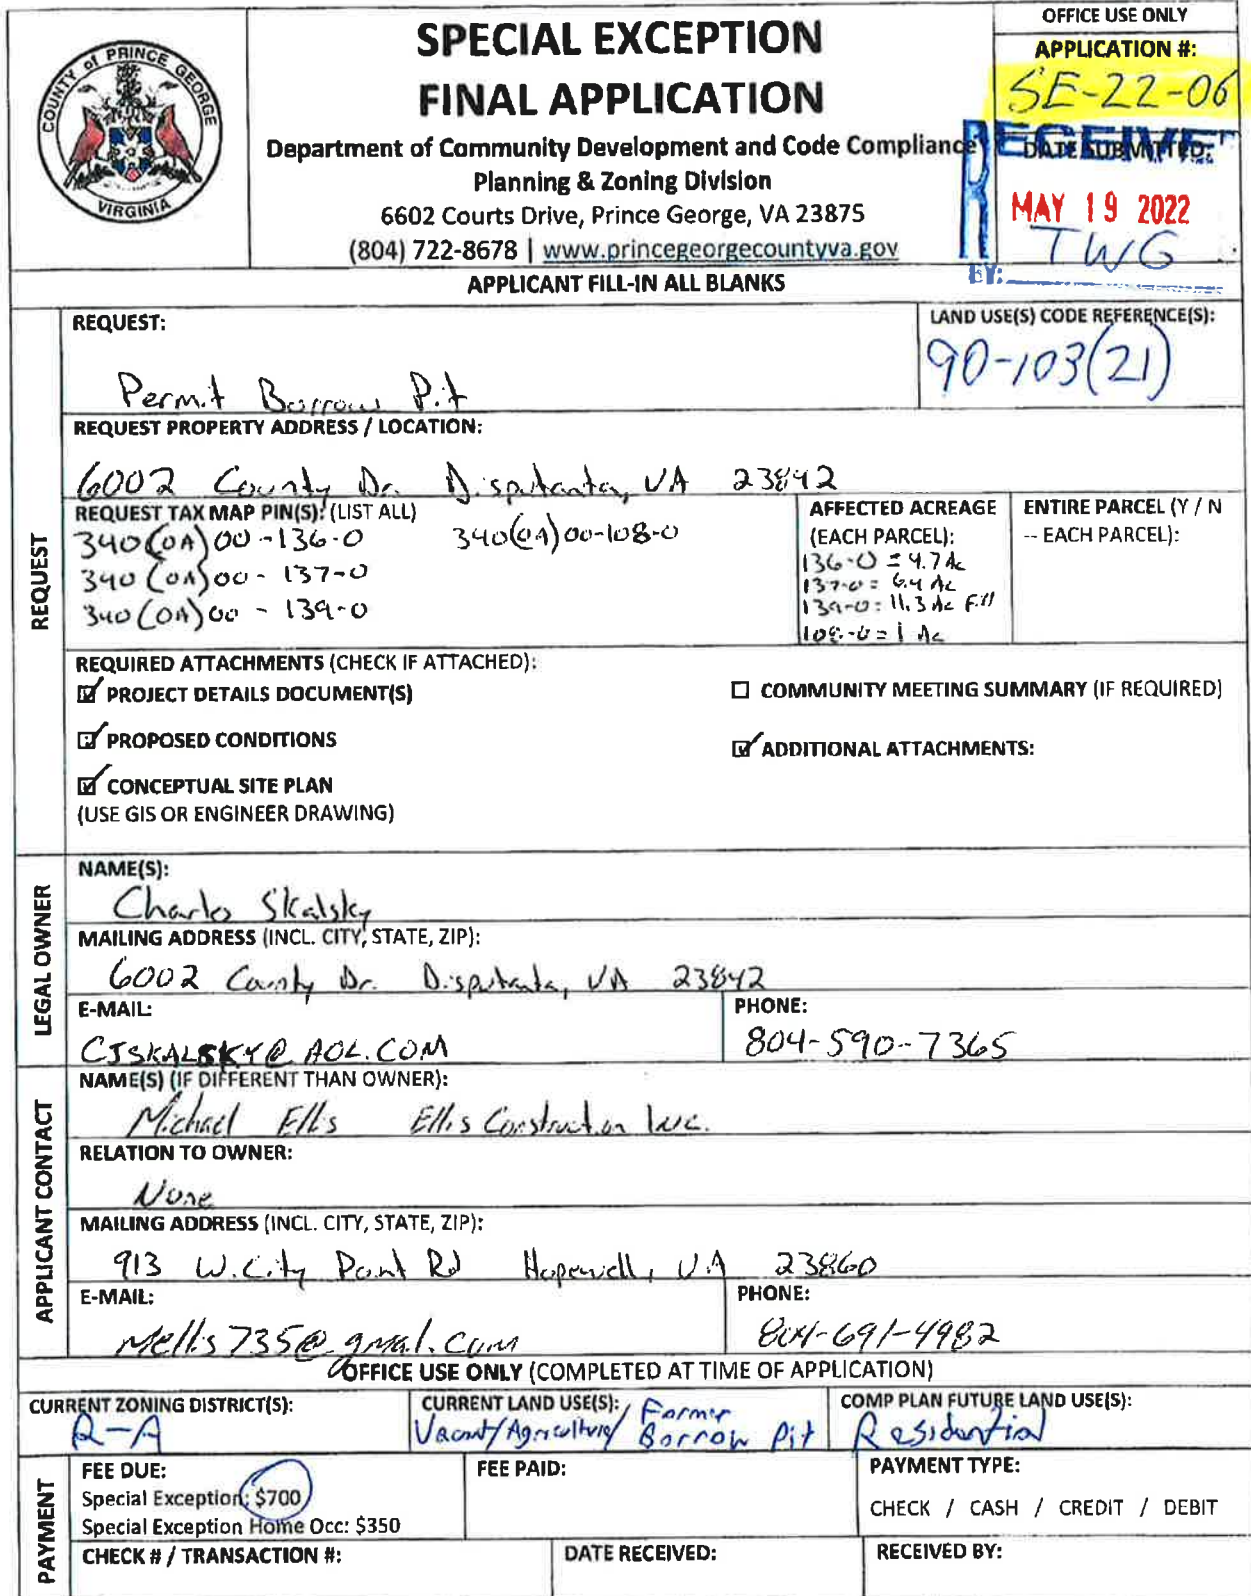 COUNTY of PRINCE GEORGE
VIRGINIA
SPECIAL EXCEPTION
FINAL APPLICATION
Department of Community Development and Code Compliance
Planning & Zoning Division
6602 Courts Drive, Prince George, VA 23875
(804) 722-8678 | www.princegeorgecountyva.gov
OFFICE USE ONLY
APPLICATION #:
SE-22-06
RECEIVE
DATE SUBMITTED:
MAY 19 2022
TWG
BY:
APPLICANT FILL-IN ALL BLANKS
REQUEST
REQUEST:
Permit Borrow Pit
LAND USE(S) CODE REFERENCE(S):
90-103(21)
REQUEST PROPERTY ADDRESS / LOCATION:
6002 County Dr. Disputanta, VA 23842
REQUEST TAX MAP PIN(S): (LIST ALL)
340(0A)00-136-0 340(0A)00-108-0
340(0A)00-137-0
340(0A)00-139-0
AFFECTED ACREAGE
(EACH PARCEL):
136-0 = 4.7 Ac
137-0 = 6.4 Ac
139-0 = 11.3 Ac Fill
108-0 = 1 Ac
ENTIRE PARCEL (Y / N
-- EACH PARCEL):
REQUIRED ATTACHMENTS (CHECK IF ATTACHED):
☑ PROJECT DETAILS DOCUMENT(S)
☐ COMMUNITY MEETING SUMMARY (IF REQUIRED)
☑ PROPOSED CONDITIONS
☑ ADDITIONAL ATTACHMENTS:
☑ CONCEPTUAL SITE PLAN
(USE GIS OR ENGINEER DRAWING)
LEGAL OWNER
NAME(S):
Charles Skalsky
MAILING ADDRESS (INCL. CITY, STATE, ZIP):
6002 County Dr. Disputanta, VA 23842
E-MAIL:
CJSKALSKY@AOL.COM
PHONE:
804-590-7365
APPLICANT CONTACT
NAME(S) (IF DIFFERENT THAN OWNER):
Michael Ellis Ellis Construction Inc.
RELATION TO OWNER:
None
MAILING ADDRESS (INCL. CITY, STATE, ZIP):
913 W. City Point Rd Hopewell, VA 23860
E-MAIL:
Mellis735@gmail.com
PHONE:
804-691-4982
OFFICE USE ONLY (COMPLETED AT TIME OF APPLICATION)
CURRENT ZONING DISTRICT(S):
R-A
CURRENT LAND USE(S):
Vacant/Agriculture/ Former Borrow Pit
COMP PLAN FUTURE LAND USE(S):
Residential
PAYMENT
FEE DUE:
Special Exception: $700
Special Exception Home Occ: $350
FEE PAID:
PAYMENT TYPE:
CHECK / CASH / CREDIT / DEBIT
CHECK # / TRANSACTION #:
DATE RECEIVED:
RECEIVED BY: